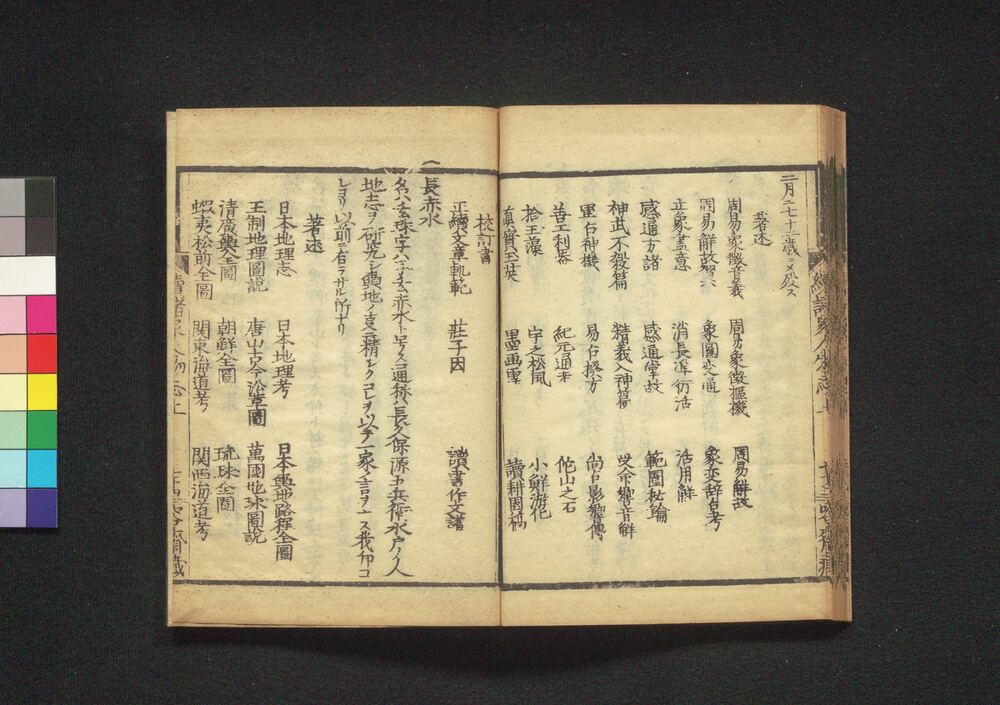 二月二七十二歳ニメ歿ス
著述
周易象徴音義 周易象徴樞機 周易解故
周易解故 象圖交通 象変辞占考
立象盡意 消長渾衍活 活用解
感通方諸 感通常故 範圍秘鑰
神武不殺篇 精義入神篇 受命響音解
里占神機 易占揆方 尚占影響傳
善工利器 紀元通 他山之石
拾玉藻 宇之松風 小鮮游化
真寶玉英 墨画 讀耕因
校訂書
正續文章軌範 荘子因 讀書作文譜
長赤水
名ハ玄珠字ハ子玉赤水ト号ス通称ハ長久保源五兵衛水戸ノ人
地志ヲ研究シ輿地ノ支ニ精シクコレヲ以テ一家ノ言ヲナス我邦コ
レヨリ以前ニ有ラサル所ナリ
著述
日本地理志 日本地理考 日本輿地路程全圖
王制地理圖説 唐山古今沿革圖 萬国地球圖説
清廣輿全圖 朝鮮全圖 琉球全圖
蝦夷松前全圖 関東海道考 関西海道考